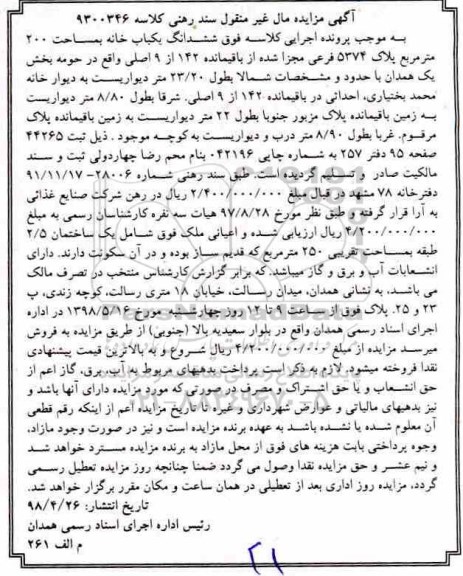 آگهی مزایده مال غیر منقول سند رهنی کلاسه ۹۳۰۰۳۴۶
به موجب پرونده اجرایی کلاسه فوق ششدانگ یکباب خانه بمساحت ۲۰۰
مترمربع پلاک ۵۳۷۴ فرعی مجزا شده از باقیمانده ۱۴۲ از ۹ اصلی واقع در حومه بخش
یک همدان با حدود و مشخصات شمالا بطول ۲۳/۲۰ متر دیواریست به دیوار خانه
محمد بختیاری، احداثی در باقیمانده ۱۴۲ از ۹ اصلی. شرقا بطول ۸/۸۰ متر دیواریست
به زمین باقیمانده پلاک مزبور جنوبا بطول ۲۲ متر دیواریست به زمین باقیمانده پلاک
مرقوم. غربا بطول ۸/۹۰ متر درب و دیواریست به کوچه موجود . ذیل ثبت ۴۴۲۶۵
صفحه ۹۵ دفتر ۲۵۷ به شماره چاپی ۰۴۲۱۹۶ بنام محم رضا چهاردولی ثبت و سند
مالکیت صادر و تسلیم گردیده است. طبق سند رهنی شماره ۲۸۰۰۶- ۹۱/۱۱/۱۷
دفترخانه ۷۸ مشهد در قبال مبلغ ۲/۴۰۰/۰۰۰/۰۰۰ ریال در رهن شرکت صنایع غذائی
به آرا قرار گرفته و طبق نظر مورخ ۹۷/۸/۲۸ هیات سه نفره کارشناسان رسمی به مبلغ
۴/۲۰۰/۰۰۰/۰۰۰ ریال ارزیابی شده و اعیانی ملک فوق شامل یک ساختمان ۲/۵
طبقه بمساحت تقریبی ۲۵۰ مترمربع که قدیم ساز بوده و در آن سکونت دارند. دارای
انشعابات آب و برق و گاز میباشد.که برابر گزارش کارشناس منتخب در تصرف مالک
می باشد، به نشانی همدان، میدان رسالت، خیابان ۱۸ متری رسالت، کوچه زندی، پ
۲۳ و ۲۵. پلاک فوق از ساعت ۹ تا ۱۲ روز چهارشنبه مورخ ۱۳۹۸/۵/۱۶ در اداره
اجرای اسناد رسمی همدان واقع در بلوار سعیدیه بالا (جنوبی) از طریق مزایده به فروش
میرسد مزایده از مبلغ ۴/۲۰۰/۰۰۰/۰۰۰ ریال شروع و به بالاترین قیمت پیشنهادی
نقدا فروخته میشود. لازم به ذکر است پرداخت بدهیهای مربوط به آب، برق، گاز اعم از
حق انشعاب و یا حق اشتراک و مصرف در صورتی که مورد مزایده دارای آنها باشد و
نیز بدهیهای مالیاتی و عوارض شهرداری و غیره تا تاریخ مزایده اعم از اینکه رقم قطعی
آن معلوم شده یا نشده باشد به عهده برنده مزایده است و نیز در صورت وجود مازاد،
وجوه پرداختی بابت هزینه های فوق از محل مازاد به برنده مزایده مسترد خواهد شد
و نیم عشر و حق مزایده نقدا وصول می گردد ضمنا چنانچه روز مزایده تعطیل رسمی
گردد، مزایده روز اداری بعد از تعطیلی در همان ساعت و مکان مقرر برگزار خواهد شد.
تاریخ انتشار: ۹۸/۴/۲۶
رئیس اداره اجرای اسناد رسمی همدان
م الف ۲۶۱
۲۱